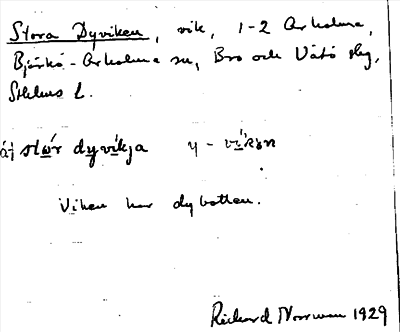 Stora Dyviken, vik, 1-2 Arholma,
Björkö-Arholma sn, Bro och Vätö skg,
Sthlms l.
stẃr dyvikja y - vikən
Viken har dybotten.
Rickard Norman 1929